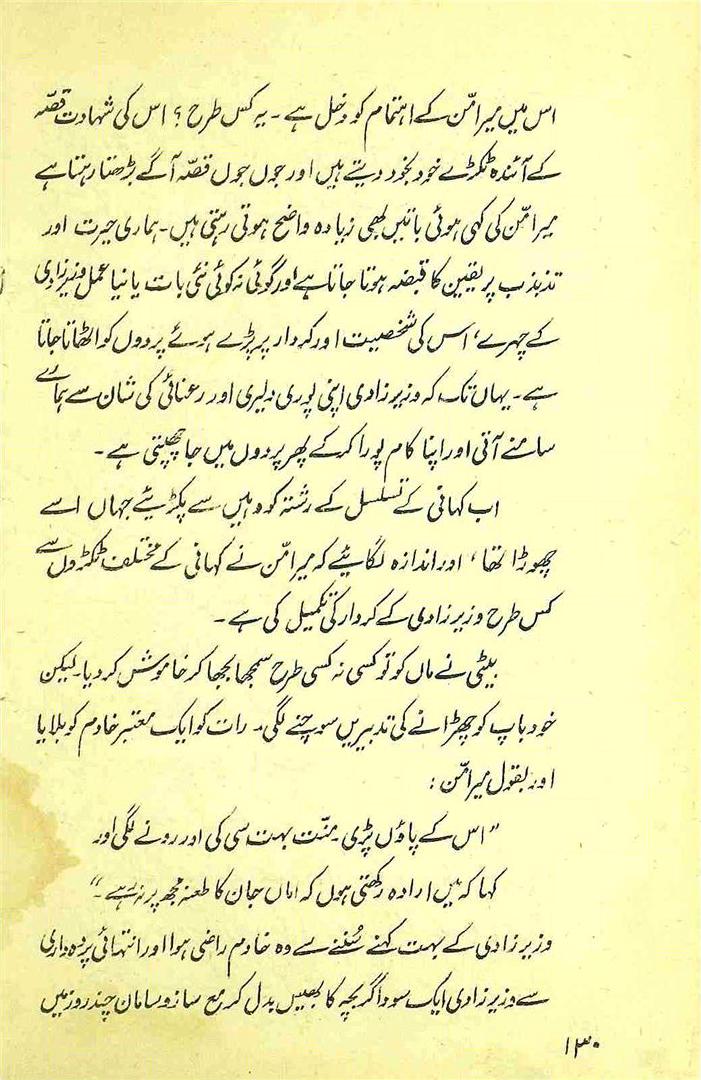 اس میں میر امّن کے اہتمام کو دخل ہے ۔ یہ کس طرح ؟ اس کی شہادت قصّہ
کے آئندہ ٹکڑے خود بخود دیتے ہیں اور جوں جوں قصّہ آگے بڑھتا رہتا ہے
میر امّن کی کہی ہوئی باتیں بھی زیادہ واضح ہوتی رہتی ہیں۔ ہماری حیرت اور
تذبذب پر یقین کا قبضہ ہوتا جاتا ہے اور گوئی نہ کوئی نئی بات یا نیا عمل وزیر زادی
کے چہرے، اس کی شخصیت اور کردار پر پڑے ہوئے پردوں کو اٹھاتا جاتا
ہے ۔ یہاں تک کہ وزیر زادی اپنی پوری دلیری اور رعنائی کی شان سے ہمارے
سامنے آتی اور اپنا کام پورا کرکے پھر پردوں میں جا چھپتی ہے ۔
اب کہانی کے تسلسل کے رشتہ کو وہیں سے پکڑیئے جہاں اسے
چھوڑا تھا، اور اندازہ لگایئے کہ میر امّن نے کہانی کے مختلف ٹکڑوں سے
کس طرح وزیر زادی کے کردار کی تکمیل کی ہے ۔
بیٹی نے ماں کو تو کسی نہ کسی طرح سمجھا بجھا کر خاموش کر دیا۔ لیکن
خود باپ کو چھڑانے کی تدبیریں سوچنے لگی۔ رات کو ایک معتبر خادم کو بلایا
اور بقول میر امّن :
”اس کے پاؤں پڑی۔ منّت بہت سی کی اور رونے لگی اور
کہا کہ میں ارادہ رکھتی ہوں کہ اماں جان کا طعنہ مجھ پر نہ رہے ۔“
وزیر زادی کے بہت کہنے سُننے سے وہ خادم راضی ہوا اور انتہائی پردہ داری
سے وزیر زادی ایک سوداگر بچہ کا بھیس بدل کر مع ساز و سامان چند روز میں
۱۳۰